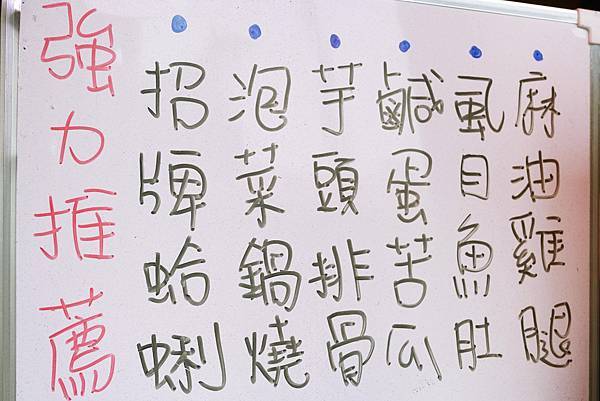 強力推薦
招牌蛤蜊
泡菜鍋燒
芋頭排骨
鹹蛋苦瓜
虱目魚肚
麻油雞腿